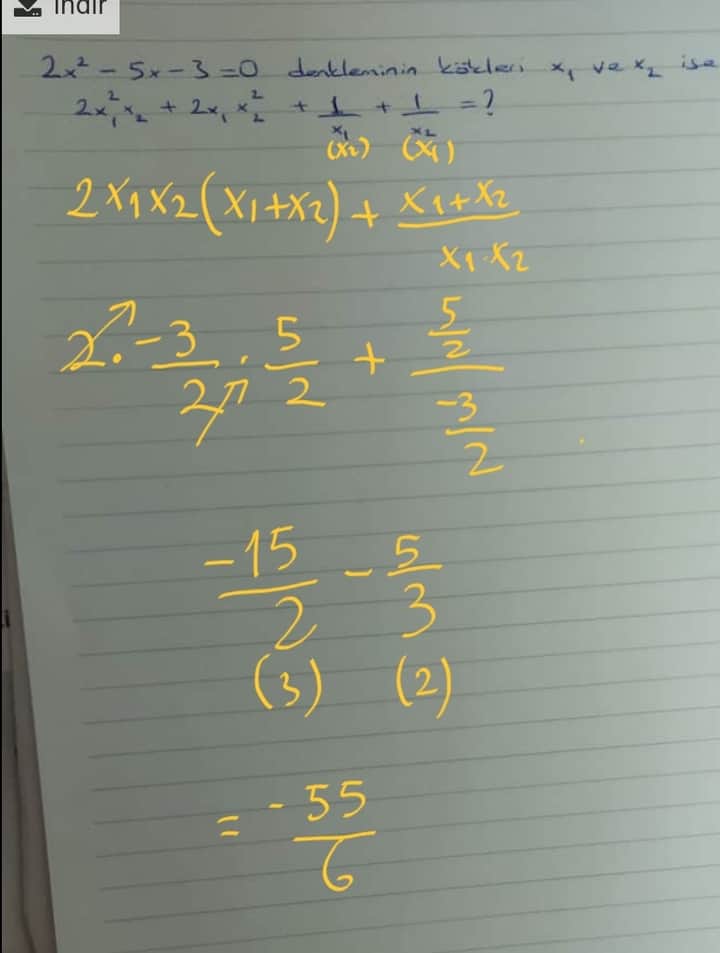 indir
2x² - 5x - 3 = 0 denkleminin kökleri x₁ ve x₂ ise
2x₁²x₂ + 2x₁x₂² + 1/x₁ + 1/x₂ = ?
(x₂) (x₁)
2x₁x₂(x₁+x₂) + (x₁+x₂)/(x₁·x₂)
2·-3/2 · 5/2 + (5/2)/(-3/2)
-15/2 - 5/3
(3) (2)
= -55/6